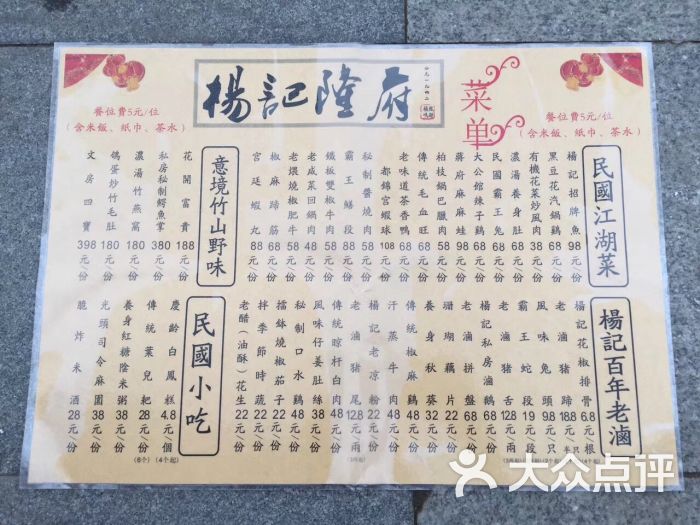 楊記隆府
菜单
餐位費5元/位
(含米飯、紙巾、茶水)
餐位費5元/位
(含米飯、紙巾、茶水)
民國江湖菜
楊記招牌魚98元/份
黑豆花汽鍋鷄68元/份
有機花菜炒風肉38元/份
濃湯養身肚68元/份
民國霸王兔68元/份
大公館辣子鷄68元/份
蔣府麻麻蛙98元/份
柏枝鍋巴臘肉58元/份
傳統毛血旺68元/份
老味道茶香鴨68元/份
都錦宮蝦球108元/份
秘制醬燒肉58元/份
霸王鱔段88元/份
鐵板雙椒牛肉58元/份
老咸菜回鍋肉48元/份
老煨燒椒肥牛58元/份
椒麻蹄筋68元/份
宮廷蝦丸88元/份
意境竹山野味
花開富貴188元/份
私房秘制鰐魚掌380元/份
濃湯竹燕窩180元/份
鴿蛋炒竹毛肚180元/份
文房四寶398元/份
楊記百年老滷
楊記花椒排骨6.8元/根
老滷猪蹄18.8元/半只
風味兔頭9.8元/只
霸王蛇段19元/段
老滷猪舌12.8元/兩
楊記私房滷鵝68元/份
老滷拼盤68元/份
珊瑚藕片22元/份
養身秋葵32元/份
傳統椒麻鷄48元/份
汗蒸牛肉48元/份
楊記老凉粉22元/份
老滷猪尾12.8元/兩
傳統晾杆白肉48元/份
風味仔姜肚絲38元/份
秘制口水鷄48元/份
擂鉢燒椒茄子22元/份
拌季節時蔬22元/份
老醋(油酥)花生22元/份
民國小吃
慶齡白鳳糕4.8元/個
(4个起)
傳統葉兒耙28元/份
(6个)
養身紅糖陰米粥38元/份
光頭司令麻園38元/份
脆炸米酒28元/份
大众点评